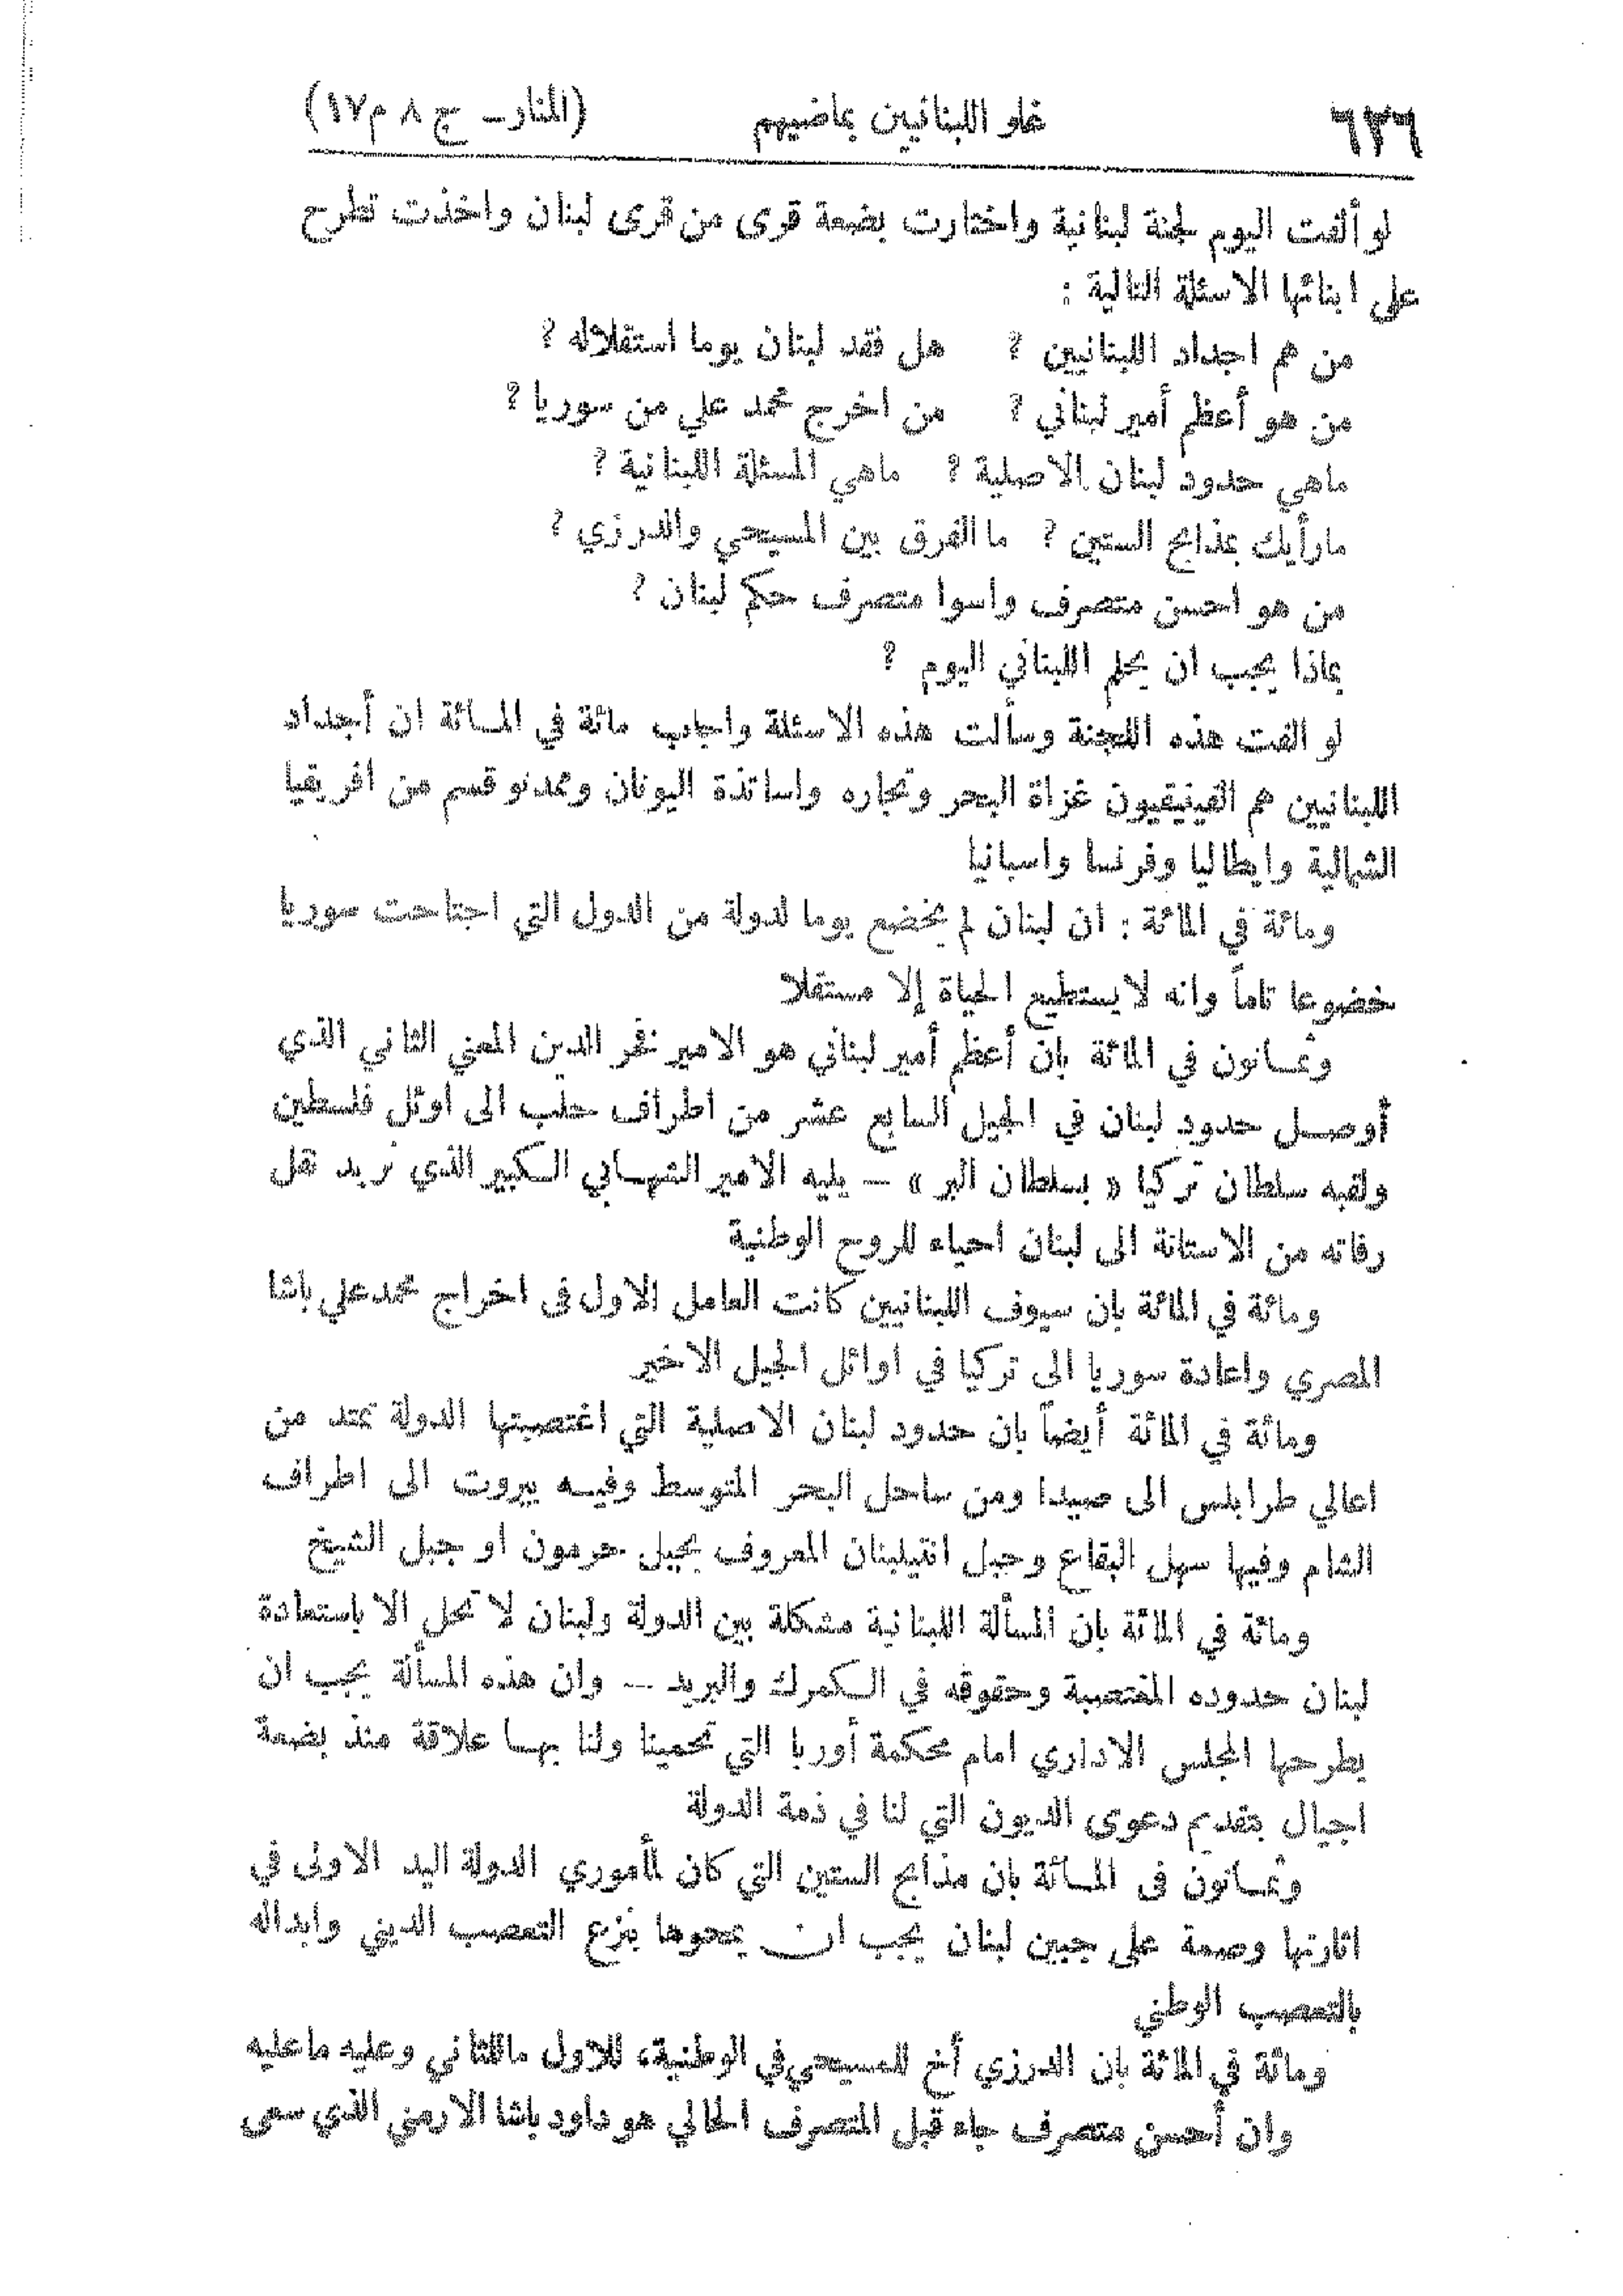 ٦٢٦ غلو اللبنانيين بماضيهم (المنار ـ ج ٨ م ١٧)
لو ألفت اليوم لجنة لبنانية واختارت بضعة قرى من قرى لبنان واخذت تطرح
على ابنائها الاسئلة التالية :
من هم اجداد اللبنانيين ? هل فقد لبنان يوما استقلاله ?
من هو أعظم أمير لبناني ? من اخرج محمد علي من سوريا ?
ماهي حدود لبنان الاصلية ? ماهي المسئلة اللبنانية ?
مارأيك بمذابح الستين ? ما الفرق بين المسيحي والدرزي ?
من هو احسن متصرف واسوا متصرف حكم لبنان ?
بماذا يجب ان يحلم اللبناني اليوم ?
لو الفت هذه اللجنة وسألت هذه الاسئلة واجاب مائة في المائة ان أجداد
اللبنانيين هم الفينيقيون غزاة البحر وتجاره واساتذة اليونان وممدنو قسم من افريقيا
الشمالية وايطاليا وفرنسا واسبانيا
ومائة في المائة : ان لبنان لم يخضع يوما لدولة من الدول التي اجتاحت سوريا
خضوعا تاماً وانه لا يستطيع الحياة إلا مستقلا
وثمانون في المائة بان أعظم أمير لبناني هو الامير فخر الدين المعني الثاني الذي
أوصل حدود لبنان في الجيل السابع عشر من اطراف حلب الى اوئل فلسطين
ولقبه سلطان تركيا « بسلطان البر » ـ يليه الامير الشهابي الكبير الذي نريد نقل
رفاته من الاستانة الى لبنان احياء للروح الوطنية
ومائة في المائة بان سيوف اللبنانيين كانت العامل الاول في اخراج محمد علي باشا
المصري واعادة سوريا الى تركيا في اوائل الجيل الاخير
ومائة في المائة أيضاً بان حدود لبنان الاصلية التي اغتصبتها الدولة تمتد من
اعالي طرابلس الى صيدا ومن ساحل البحر المتوسط وفيه بيروت الى اطراف
الشام وفيها سهل البقاع وجبل انتيلبنان المعروف بجبل حرمون او جبل الشيخ
ومائة في المائة بان المسألة اللبنانية مشكلة بين الدولة ولبنان لا تحل الا باستعادة
لبنان حدوده المغتصبة وحقوقه في الكمرك والبريد ... وان هذه المسألة يجب ان
يطرحها المجلس الاداري امام محكمة أوربا التي تحمينا ولنا بها علاقة منذ بضعة
اجيال بتقديم دعوى الديون التي لنا في ذمة الدولة
وثمانون في المائة بان مذابح الستين التي كان لمأموري الدولة اليد الاولى في
اثارتها وصمة على جبين لبنان يجب ان يمحوها بنزع التعصب الديني وابداله
بالتعصب الوطني
ومائة في المائة بان الدرزي أخ للمسيحي في الوطنية، للاول ماللثاني وعليه ماعليه
وان أحسن متصرف جاء قبل المتصرف الحالي هو داود باشا الارمني الذي سعى